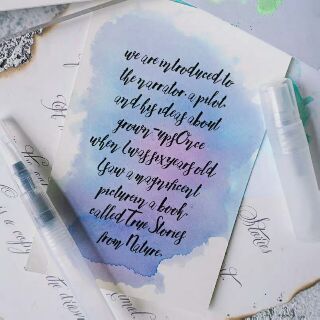 we are introduced to
the narrator, a pilot,
and his ideas about
grown-upsOnce
when I was six years old
I saw a magnificent
picturein a book,
called True Stories
from Nature,
Stories
a copy
the drawin